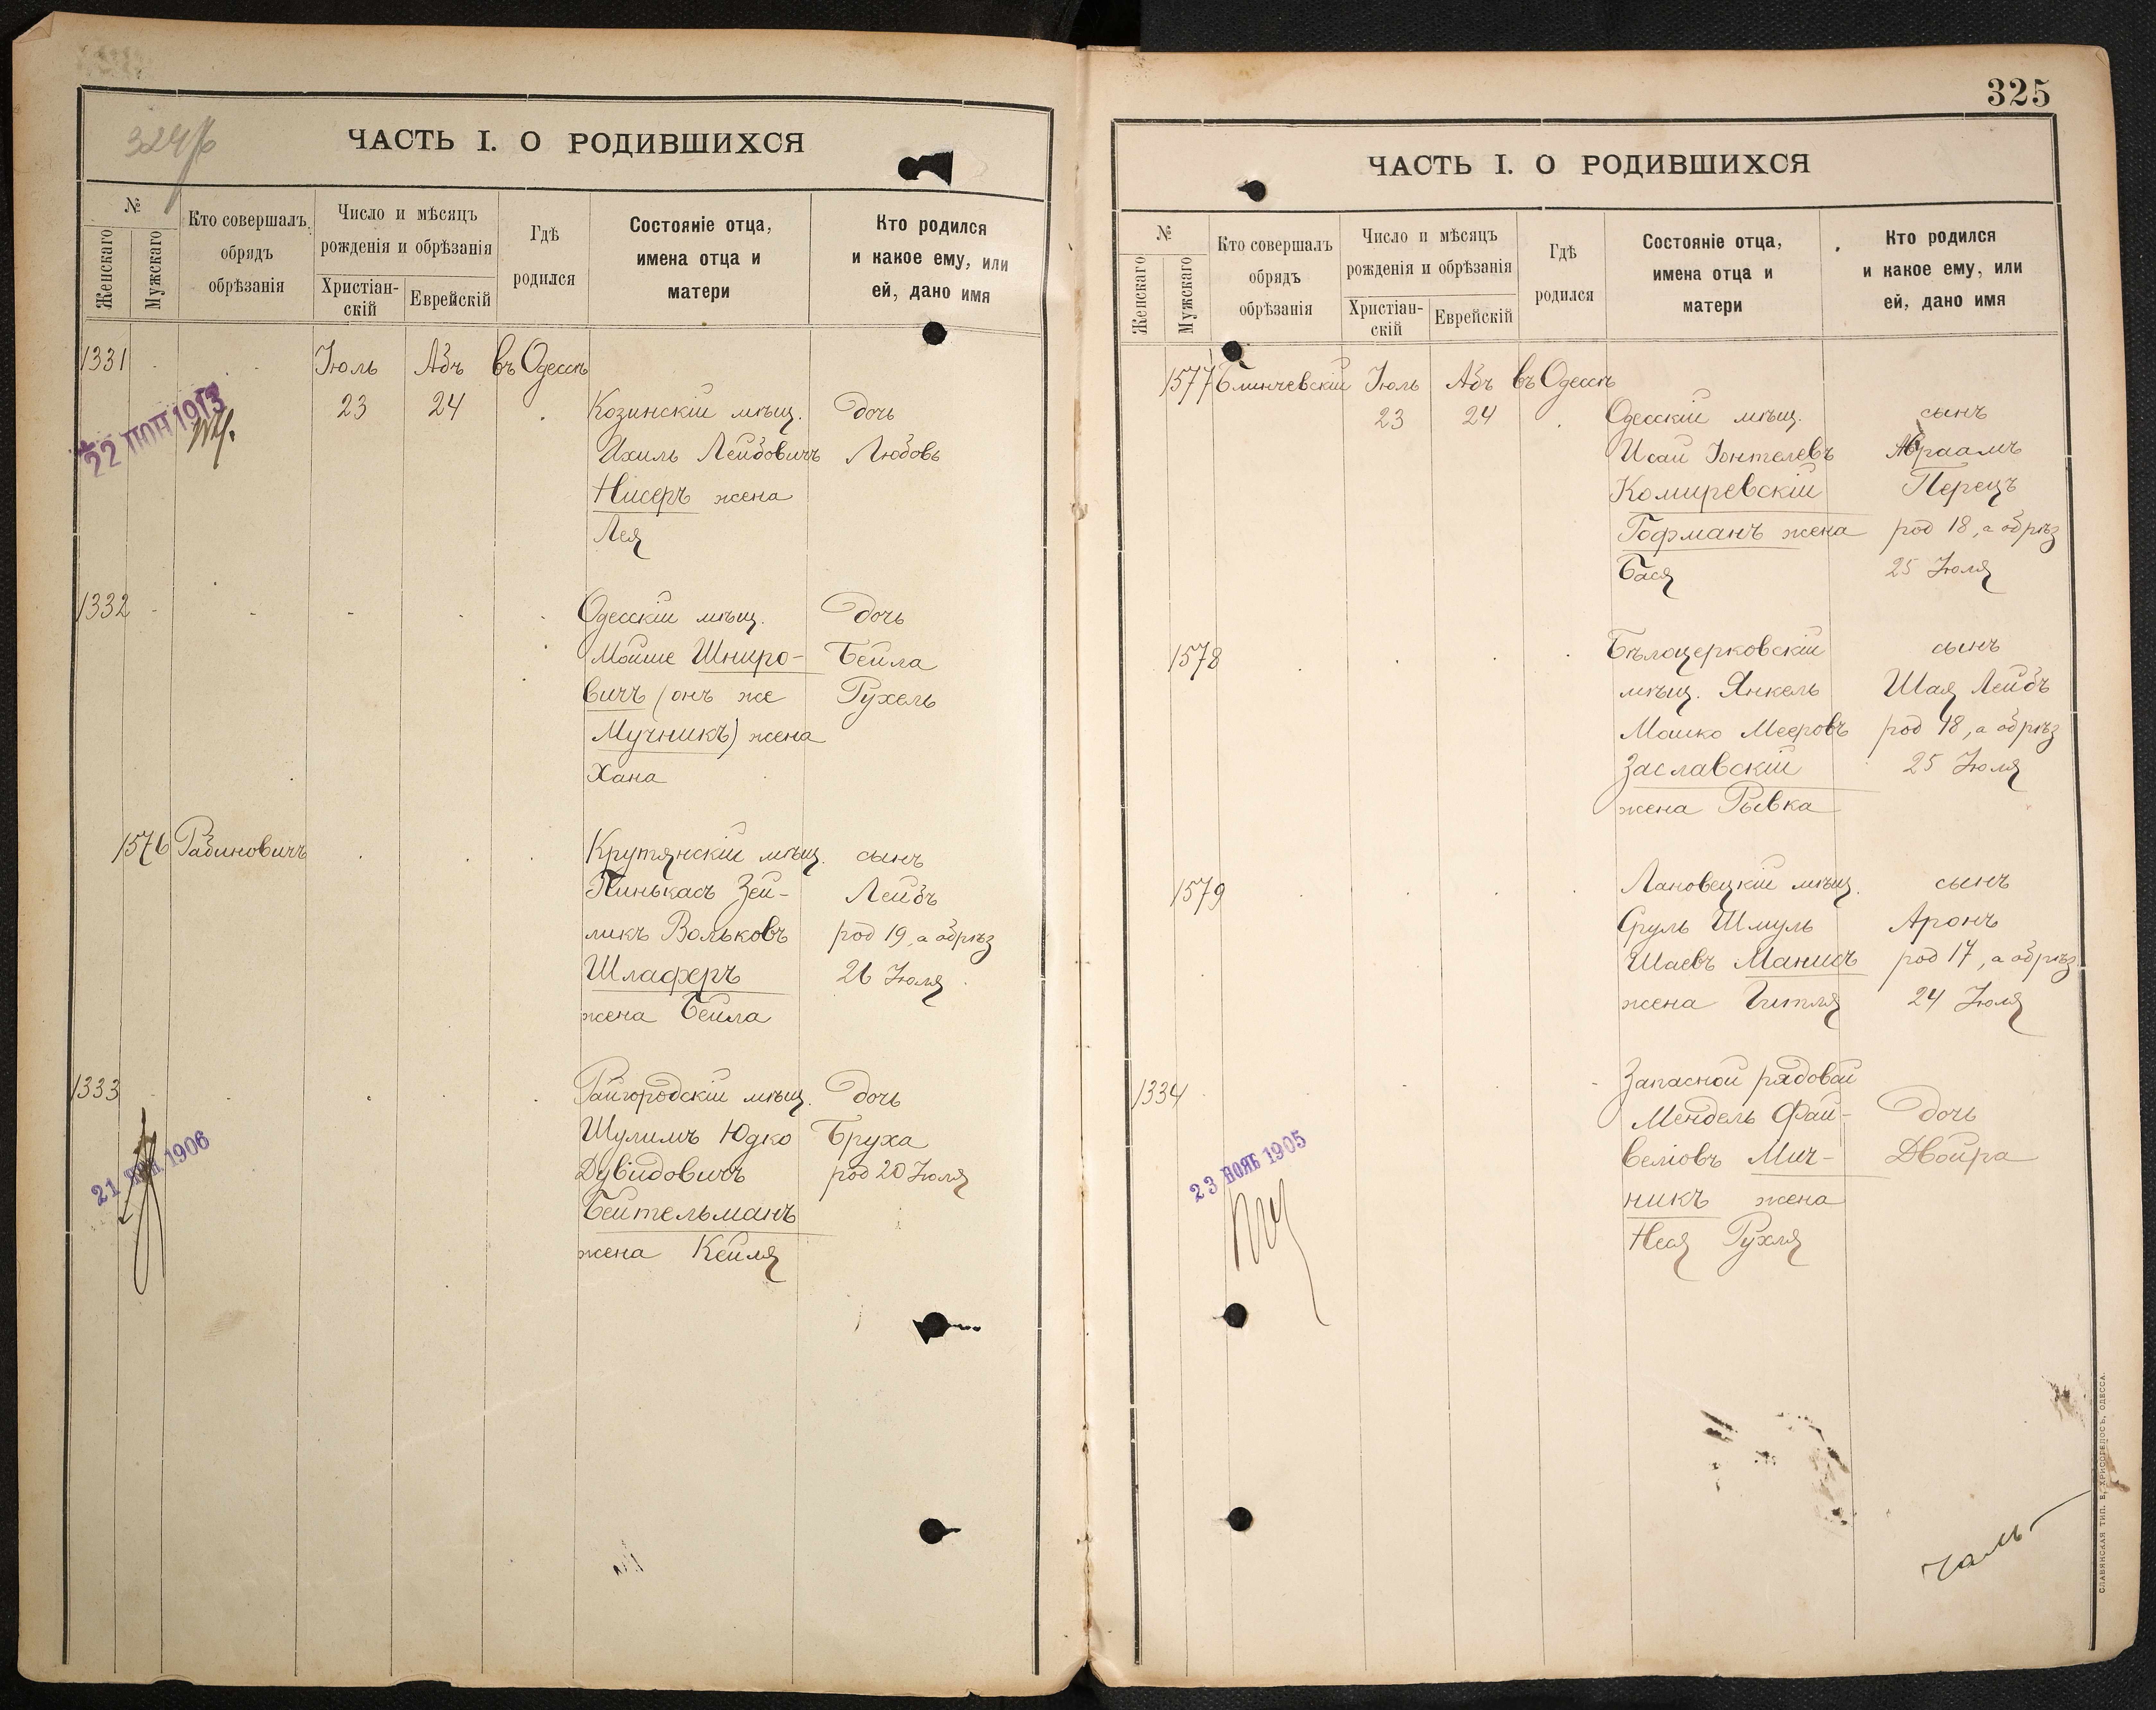 324 об
ЧАСТЬ I. О РОДИВШИХСЯ
№
Женскаго
Мужскаго
Кто совершалъ
обрядъ
обрѣзанія
Число и мѣсяцъ
рожденія и обрѣзанія
Христіан-
скій
Еврейскій
Гдѣ
родился
Состояніе отца,
имена отца и
матери
Кто родился
и какое ему, или
ей, дано имя
1331 Іюль Абъ въ Одессѣ
23 24 Козинскій мѣщ. дочь
22 ІЮН 1913
Ихиль Лейбовичъ Любовь
Нисеръ жена
Лея
1332 Одесскій мѣщ. дочь
Мойше Шниро- Бейла
вичъ (онъ же Рухель
Мучникъ) жена
Хана
1576 Рабиновичъ Крутянскій мѣщ. сынъ
Пинькасъ Зей- Лейбъ
ликъ Вольковъ род 19, а обрѣз
Шлаферъ 26 Іюля
жена Бейла
1333 Райгородскій мѣщ. дочь
Шулимъ Юдко Бруха
Дувидовичъ род 20 Іюля
21 1906
Бейтельманъ
жена Кейля
325
ЧАСТЬ I. О РОДИВШИХСЯ
№
Женскаго
Мужскаго
Кто совершалъ
обрядъ
обрѣзанія
Число и мѣсяцъ
рожденія и обрѣзанія
Христіан-
скій
Еврейскій
Гдѣ
родился
Состояніе отца,
имена отца и
матери
Кто родился
и какое ему, или
ей, дано имя
1577 Блинчевскій Іюль Абъ въ Одессѣ
23 24 Одесскій мѣщ. сынъ
Исай Іонтелевъ Авраамъ
Комиревскій Перецъ
Гофманъ жена род 18, а обрѣз
Бася 25 Іюля
1578 Бѣлоцерковскій сынъ
мѣщ. Янкель Шая Лейбъ
Мошко Мееровъ род 18, а обрѣз
Заславскій 25 Іюля
жена Рывка
1579 Лановецкій мѣщ. сынъ
Сруль Шмуль Аронъ
Шаевъ Манисъ род 17, а обрѣз
жена Гитля 24 Іюля
1334 Запасной рядовой
Мендель Фай- дочь
веліовъ Мич- Двойра
23 НОЯБ 1905
никъ жена
Неся Рухля
СЛАВЯНСКАЯ ТИП. Е. ХРИСОГЕЛОСЪ, ОДЕССА.